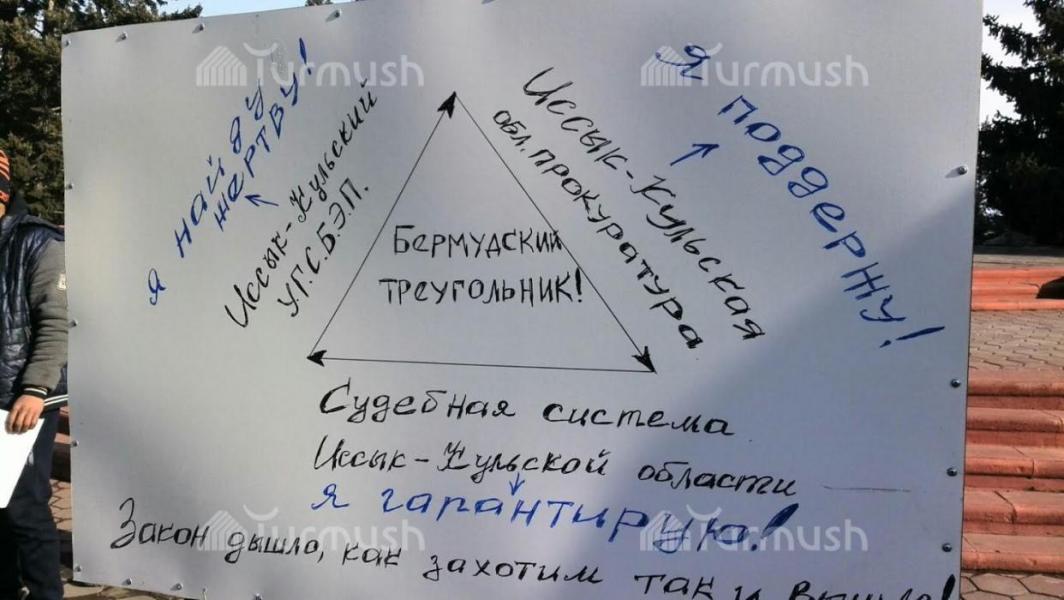 Turmush
Turmush
Я найду
жертву!
Иссык-Кульский
У.Г.С.Б.Э.П.
Иссык-Кульская
обл. прокуратура
Я поддержу!
Бермудский
треугольник!
Судебная система
Иссык-Кульской области
Я гарантирую!
Закон дышло, как захотим так и вышло!
Turmush
Turmush